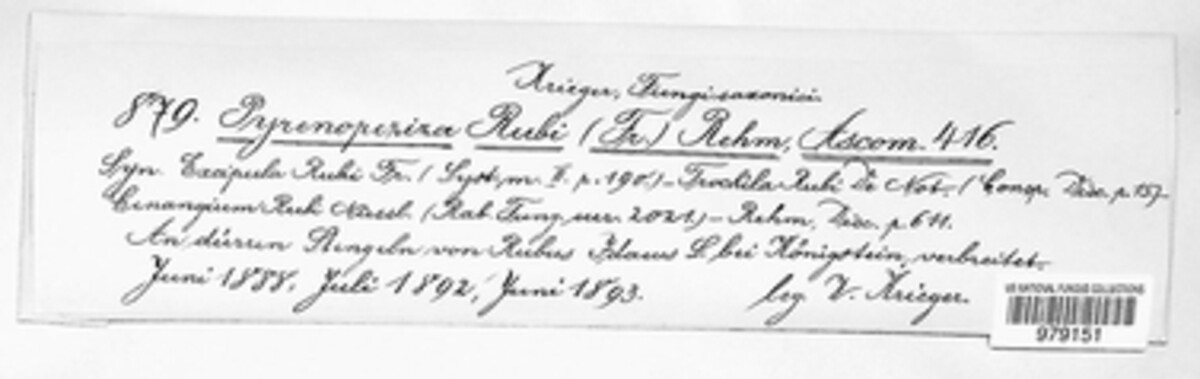 Krieger, Fungi saxonici.
879. Pyrenopeziza Rubi (Fr.) Rehm, Ascom. 416.
Syn. Excipula Rubi Fr. (Syst. m. II. p. 190.) – Trochila Rubi De Not. (Comp. Disc. p. 15) –
Cenangium Rubi (Rab. Fung. eur. 2021.) – Rehm, Disc. p. 611.
An dürren Stengeln von Rubus Idaeus L. bei Königstein, verbreitet.
Juni 1888, Juli 1892, Juni 1893. leg. W. Krieger.
US NATIONAL FUNGUS COLLECTIONS
979151